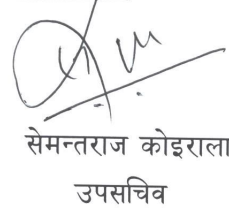 सेमन्तराज कोइराला
उपसचिव